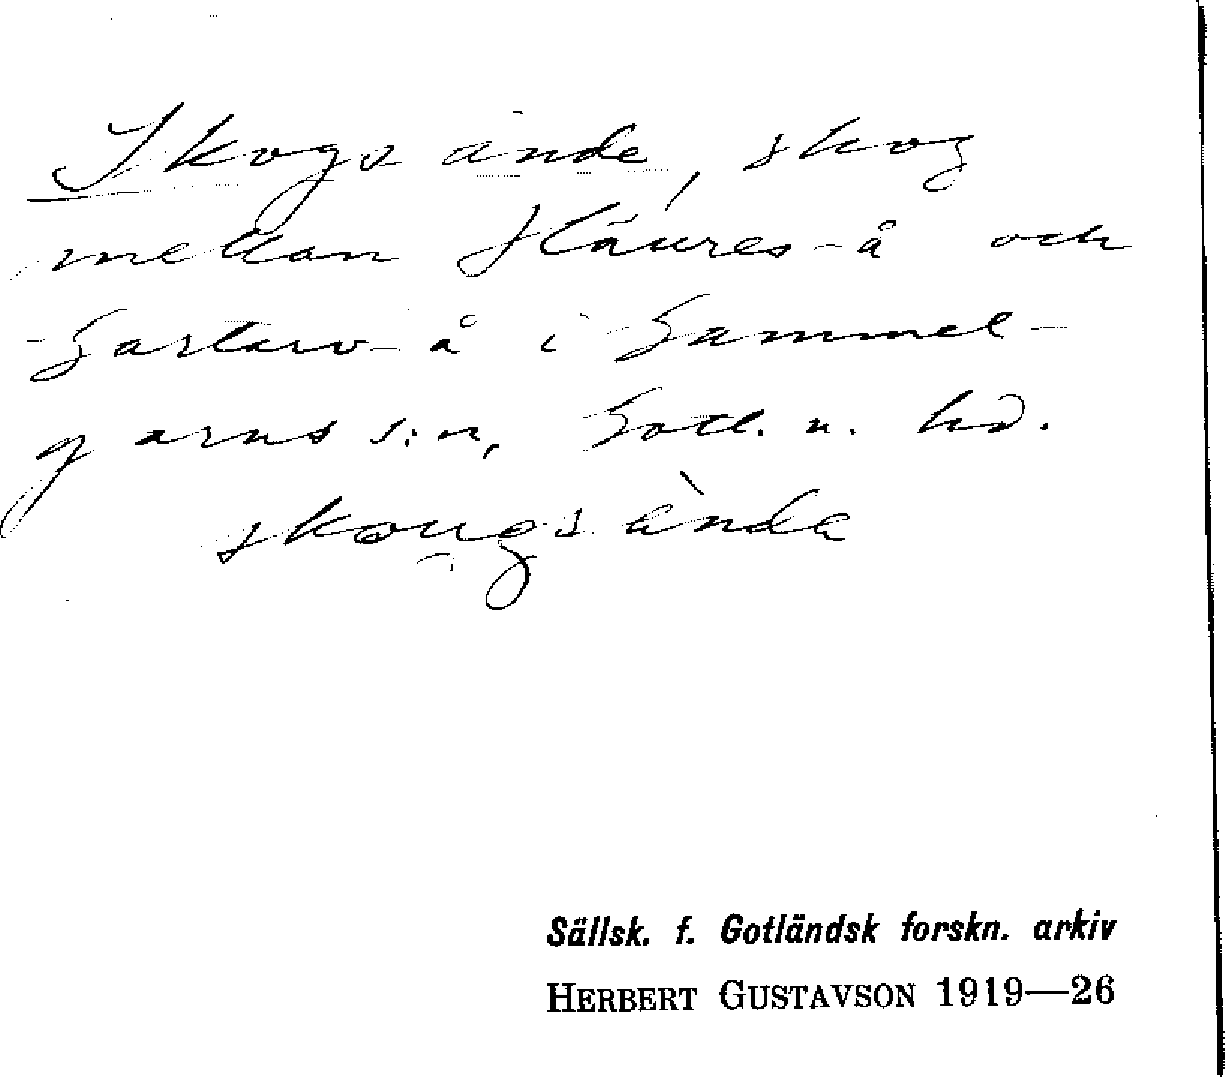 Skogsände, skog
mellan Kläures-å och
Gartarv-å i Gammel-
garns s:n, Gotl. n. hd.
skougsànda
Sällsk. f. Gotländsk forskn. arkiv
HERBERT GUSTAVSON 1919—26